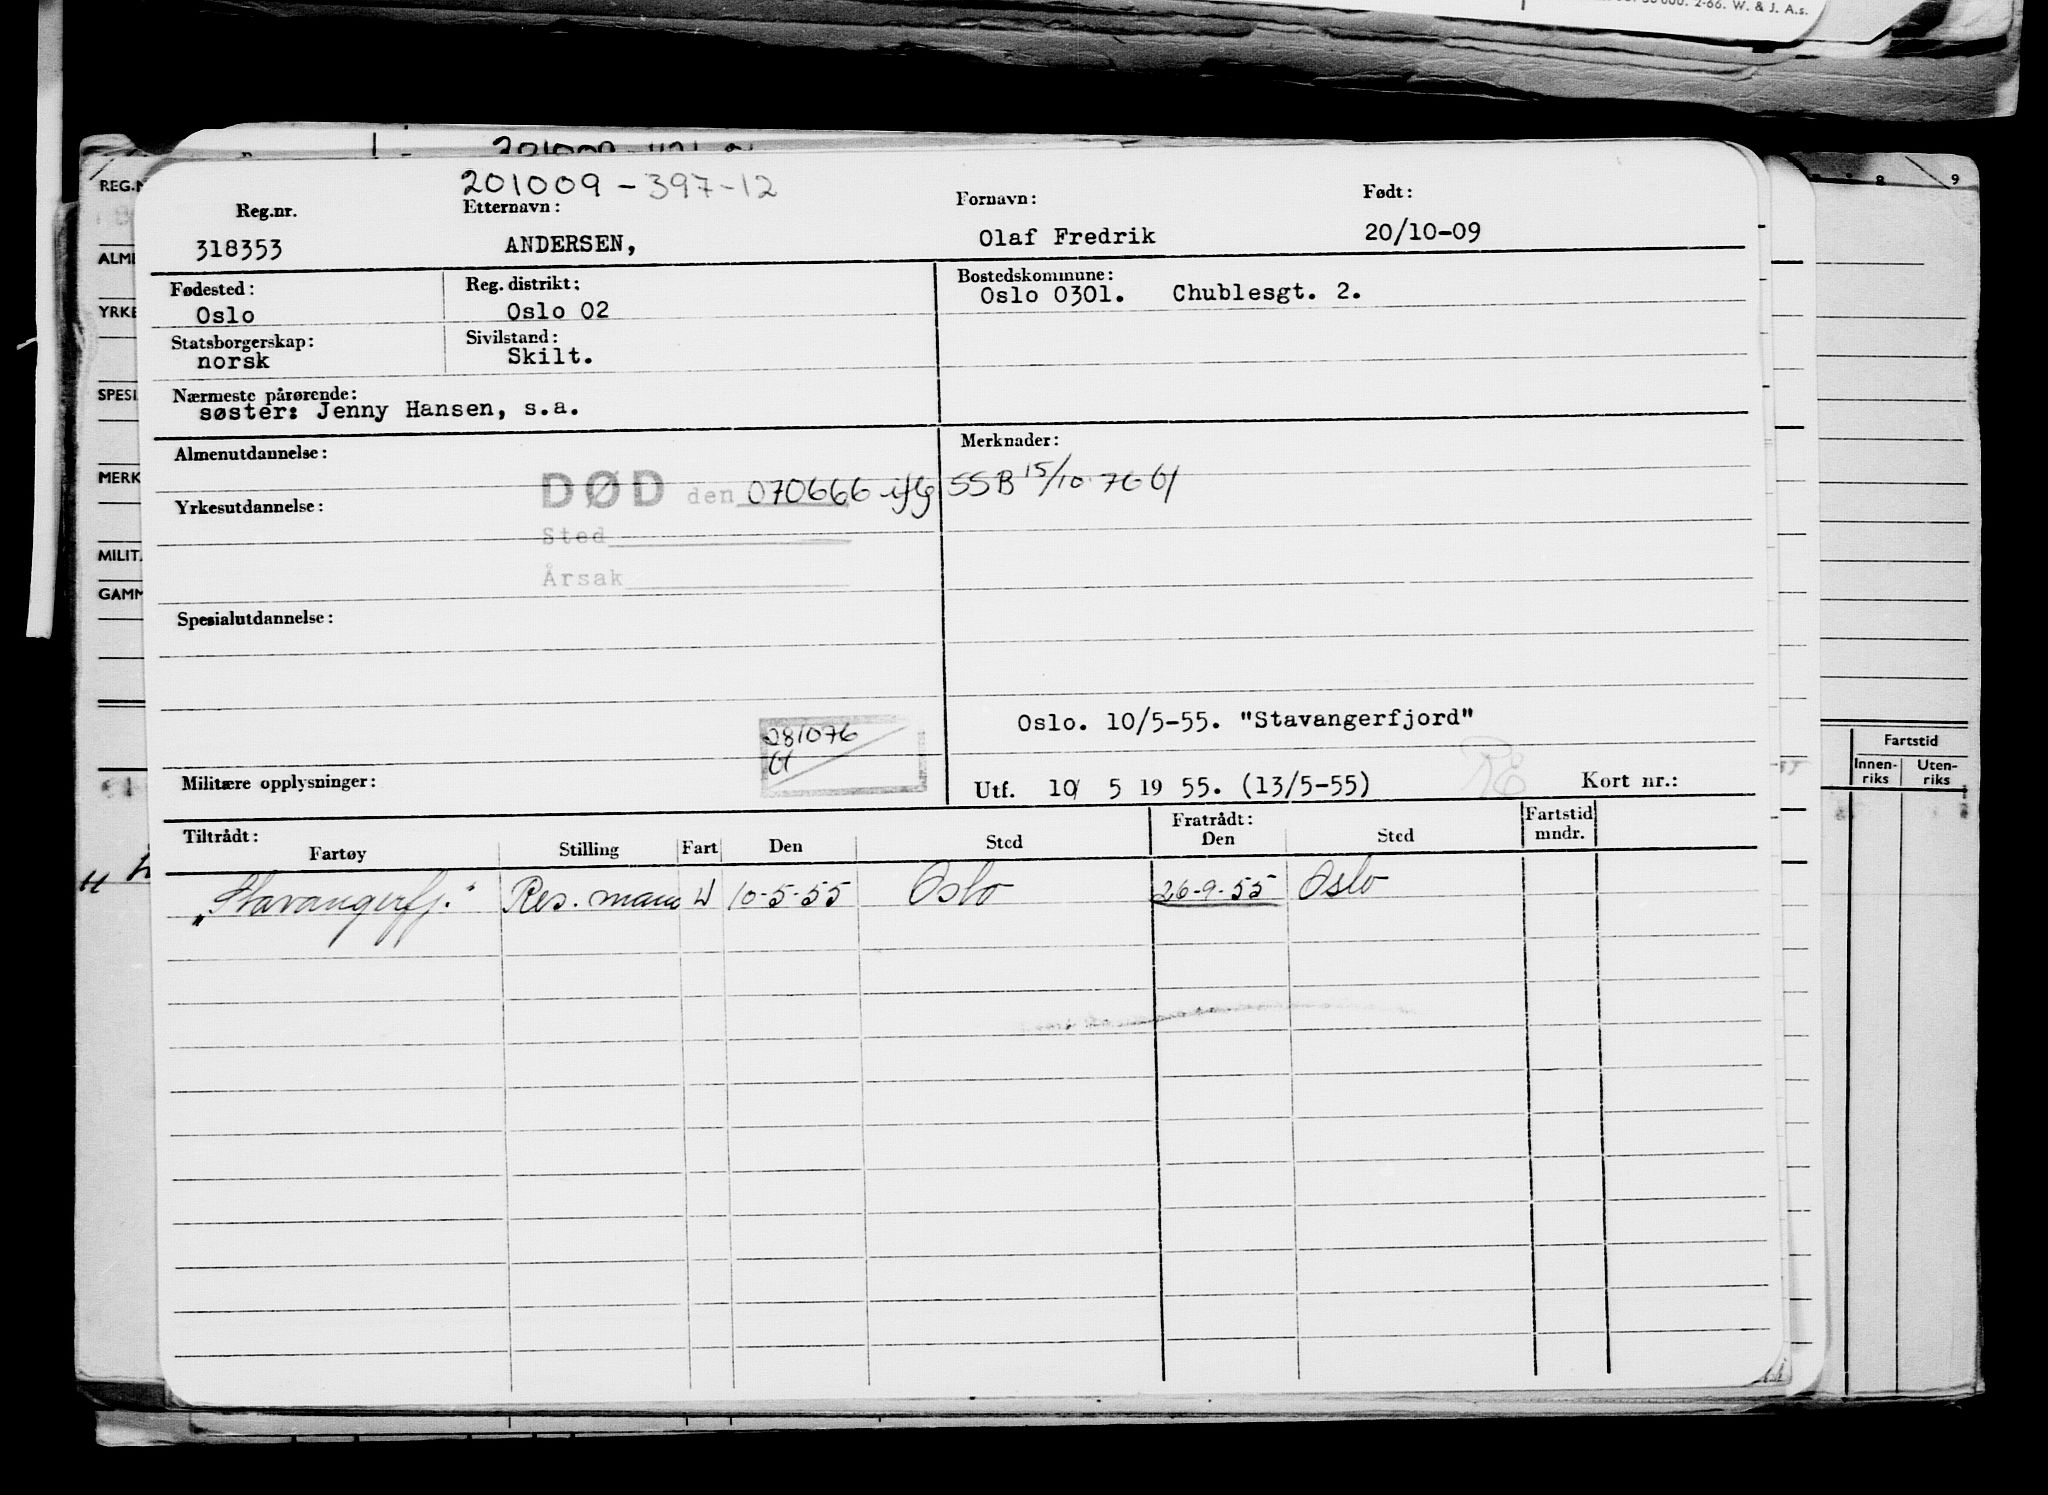 50 000. 2-66. W. & J. A.s.
REG.N
ALME
YRKE
SPESI
MERK
MILIT.
GAMM
8 9
Fartstid
Innen-riks Uten-riks
201009-397-12
Reg.nr. Etternavn: Fornavn: Født:
318353 ANDERSEN, Olaf Fredrik 20/10-09
Fødested: Reg. distrikt: Bostedskommune:
Oslo Oslo 02 Oslo 0301. Chublesgt. 2.
Statsborgerskap: Sivilstand:
norsk Skilt.
Nærmeste pårørende:
søster: Jenny Hansen, s.a.
Almenutdannelse: Merknader:
DØD den 070666 iflg SSB 15/10 76
Yrkesutdannelse:
Sted
Årsak
Spesialutdannelse:
Oslo. 10/5-55. "Stavangerfjord"
281076
Militære opplysninger: Utf. 10/ 5 19 55. (13/5-55) Kort nr.:
Tiltrådt: Fratrådt: Fartstid
Fartøy Stilling Fart Den Sted Den Sted mndr.
"Stavangerfj." Res. mann U 10-5-55 Oslo 26-9-55 Oslo